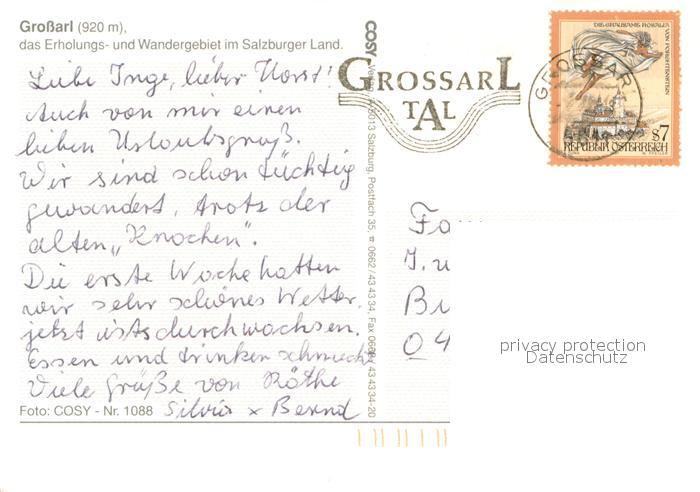 Großarl (920 m),
das Erholungs- und Wandergebiet im Salzburger Land.
Liebe Inge, lieber Horst!
Auch von mir einen
lieben Urlaubsgruß.
Wir sind schon tüchtig
gewandert, trotz der
alten „Knochen".
Die erste Woche hatten
wir sehr schönes Wetter,
jetzt ists durchwachsen.
Essen und trinken schmeckt
Viele Grüße von Käthe
Silvia x Bernd
Foto: COSY - Nr. 1088
COSY
A-5013 Salzburg, Postfach 35, 0662/43 43 34, Fax 0662/43 43 34-20
GROSSARL
TAL
GROSSARL
DIE GRAUSAME ROSALIA
VON FORCHTENSTEIN
S7
REPUBLIK ÖSTERREICH
Fa
I. u
Bu
04
privacy protection
Datenschutz